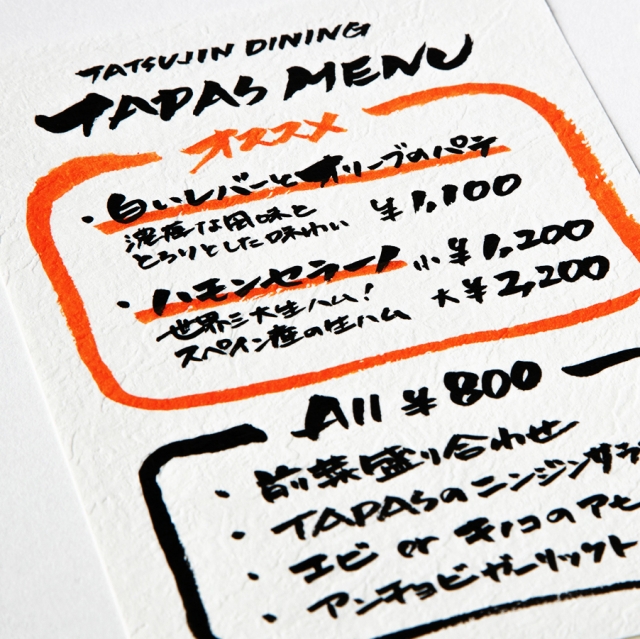 TATSUJIN DINING
TAPAS MENU
オススメ
・白いレバーとオリーブのパテ
濃厚な風味と
とろりとした味わい
¥1,100
・ハモンセラーノ
小¥1,200
世界三大生ハム!
大¥2,200
スペイン産の生ハム
All ¥800
・前菜盛り合わせ
・TAPASのニンジンサラ
・エビ or キノコのアヒ
・アンチョビガーリックト